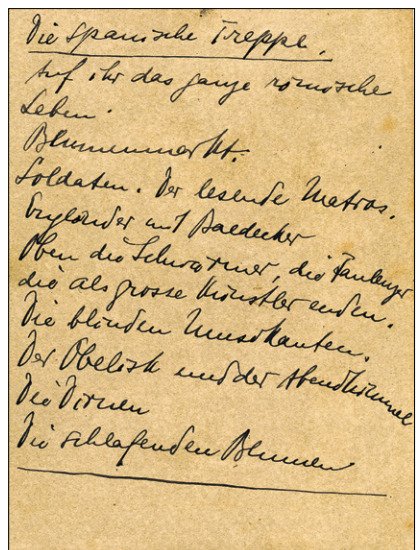 Die Spanische Treppe.
Auf ihr das ganze römische
Leben.
Blumenmarkt.
Soldaten. Der lesende Matros.
Engländer mit Baedecker
Oben die Schwärmer, die Faulenzer
die als grosse Künstler enden.
Die blinden Musikanten.
Der Obelisk und der Abendhimmel
Die Dirnen
Die schlafenden Blumen